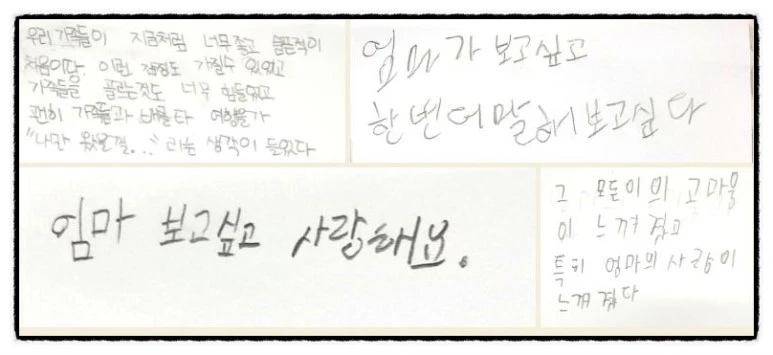 우리 가족들이 지금처럼 너무 좋고 슬픈적이
처음이다. 이런 감정도 가질수 있었고
가족들을 고르는것도 너무 힘들었고
괜히 가족들과 배를 타 여행을 가
"나만 왔을걸..." 라는 생각이 들었다
엄마가 보고싶고
한번더 말해보고싶다
엄마 보고싶고 사랑해요.
그 모든이의 고마움
이 느껴 졌고
특히 엄마의 사랑이
느껴 졌다